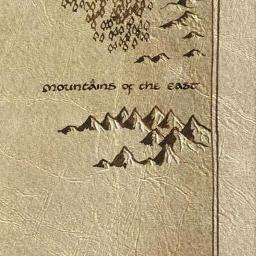 mountains of the east